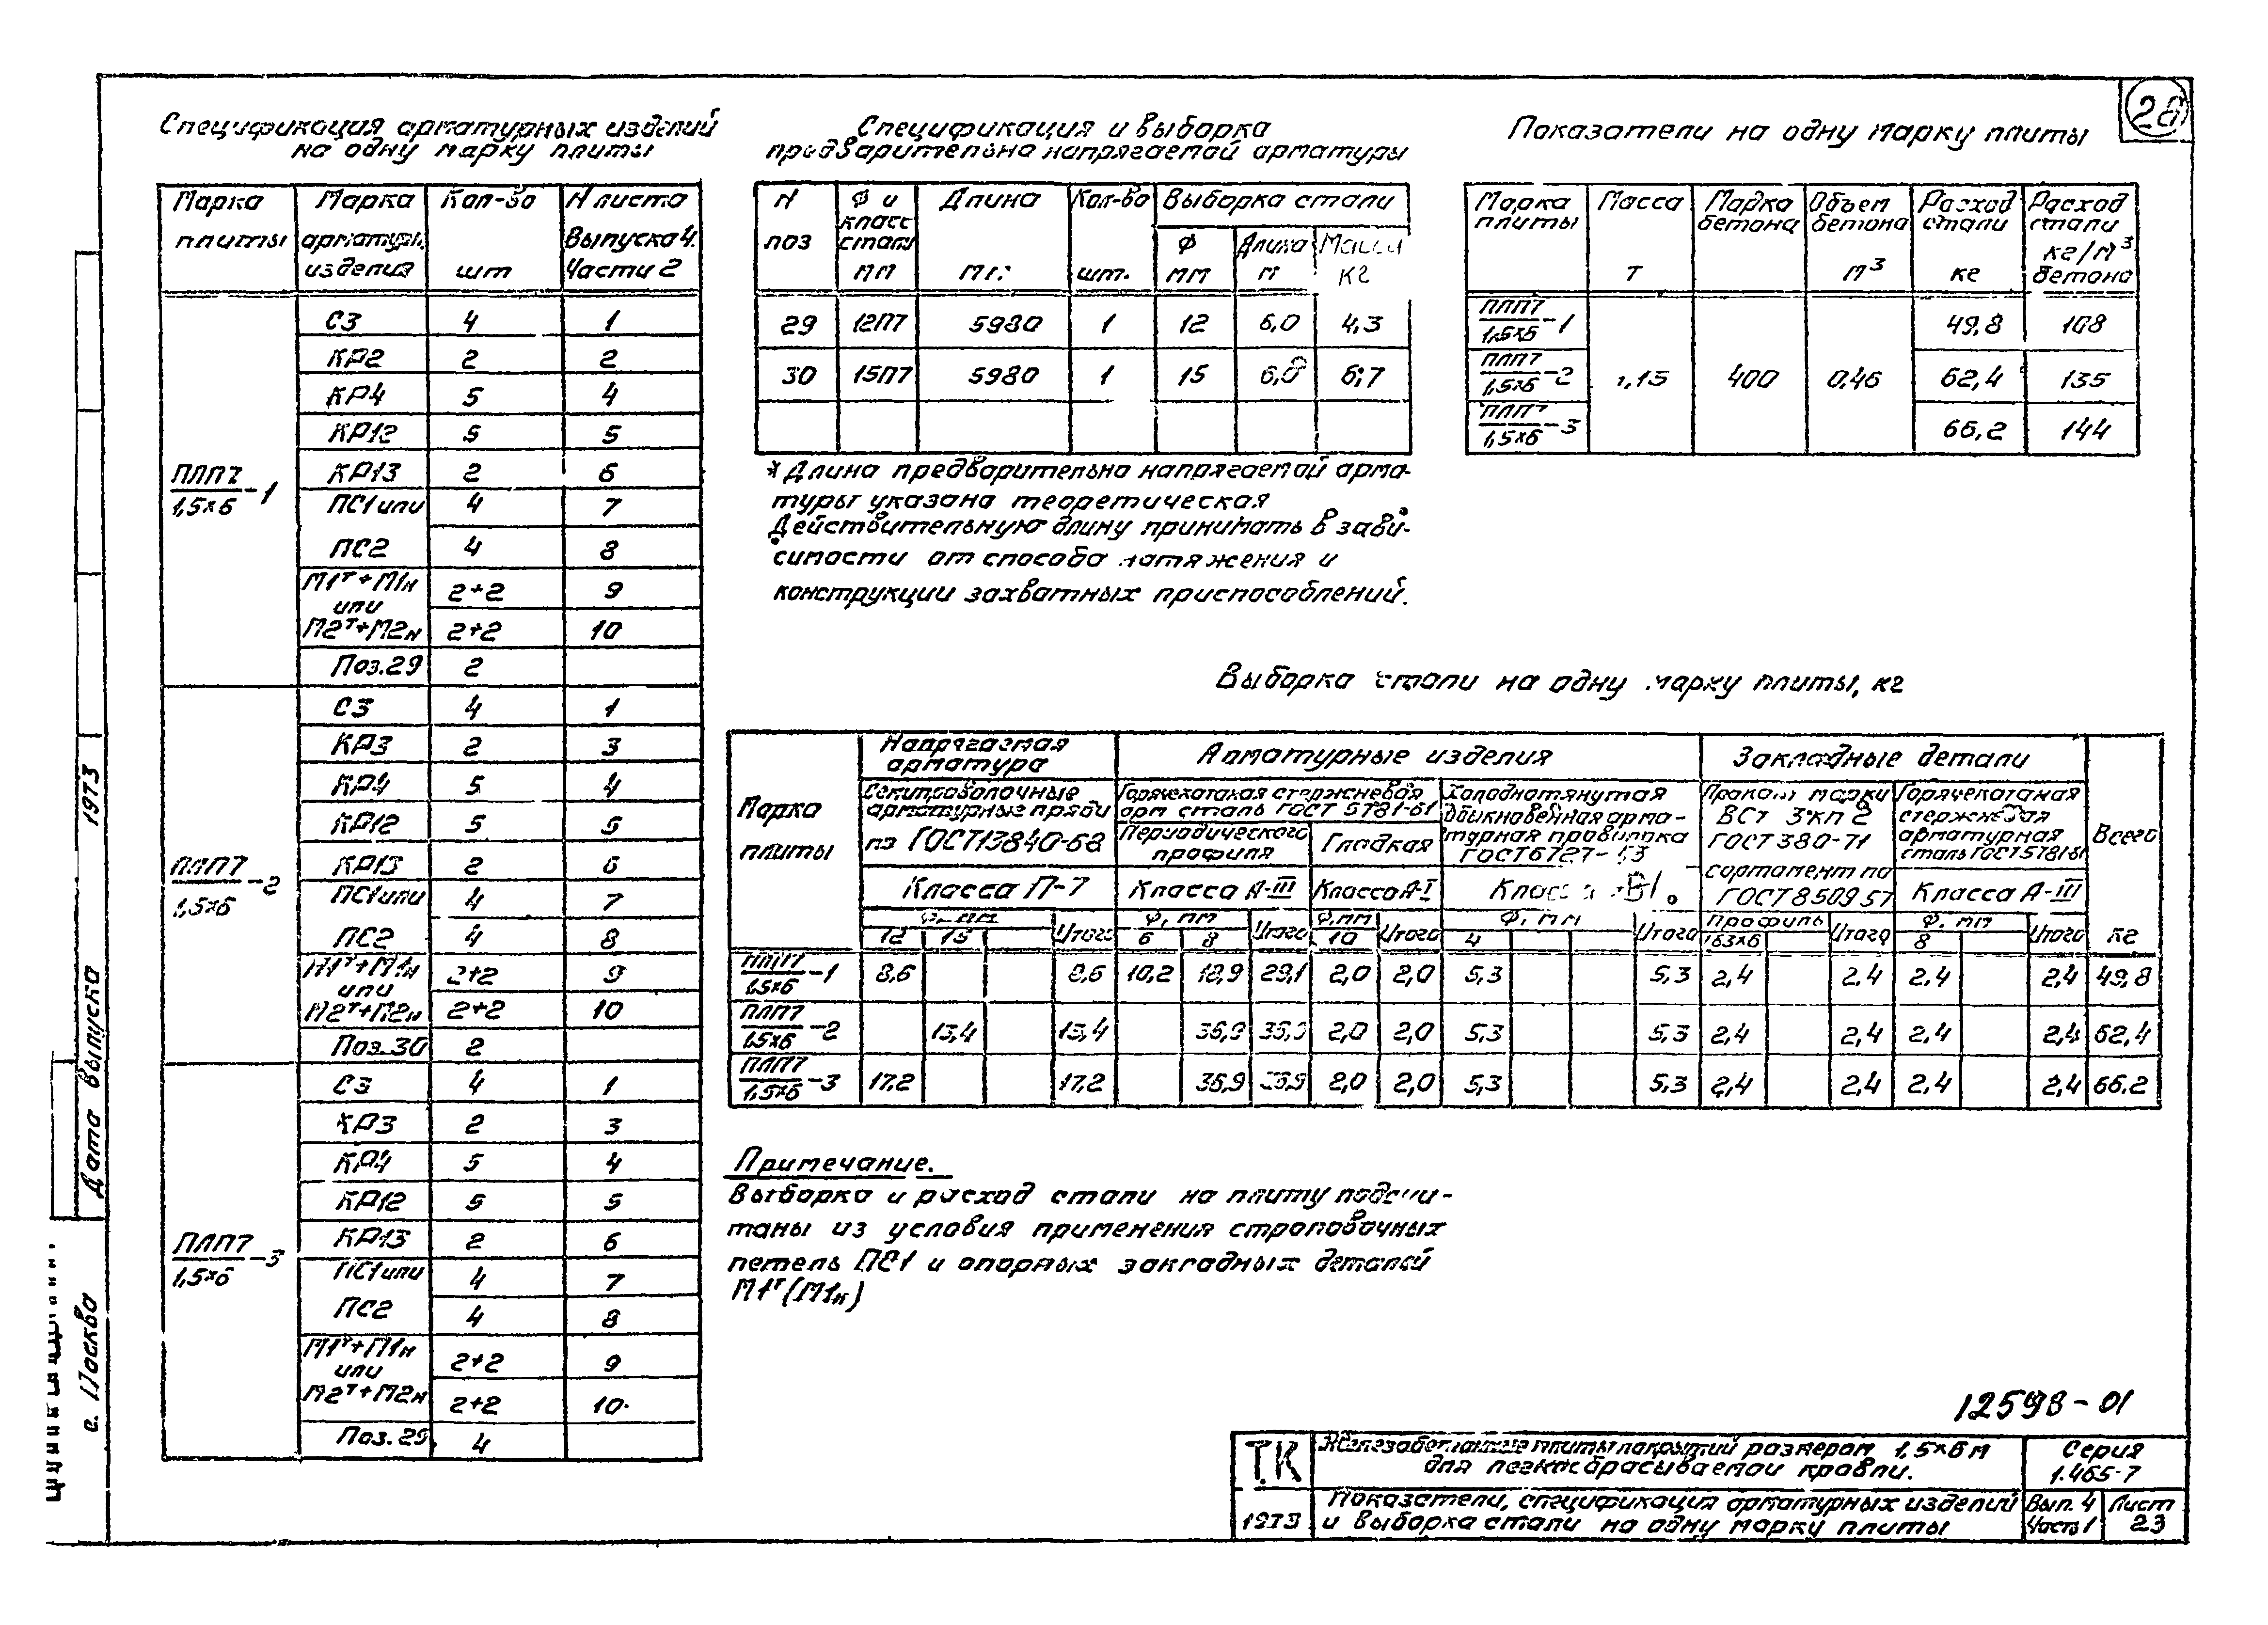 28
Спецификация арматурных изделий
на одну марку плиты
Марка плиты | Марка арматурн. изделия | Кол-во шт | N листа Выпуска 4. Части 2
ПЛП7/1,5×6-1
С3 | 4 | 1
КР2 | 2 | 2
КР4 | 5 | 4
КР12 | 5 | 5
КР13 | 2 | 6
ПС1 или | 4 | 7
ПС2 | 4 | 8
М1т+М1н | 2+2 | 9
или
М2т+М2н | 2+2 | 10
Поз.29 | 2
ПЛП7/1,5×6-2
С3 | 4 | 1
КР3 | 2 | 3
КР4 | 5 | 4
КР12 | 5 | 5
КР13 | 2 | 6
ПС1 или | 4 | 7
ПС2 | 4 | 8
М1т+М1н | 2+2 | 9
или
М2т+М2н | 2+2 | 10
Поз.30 | 2
ПЛП7/1,5×6-3
С3 | 4 | 1
КР3 | 2 | 3
КР4 | 5 | 4
КР12 | 5 | 5
КР13 | 2 | 6
ПС1 или | 4 | 7
ПС2 | 4 | 8
М1т+М1н | 2+2 | 9
или
М2т+М2н | 2+2 | 10
Поз.29 | 4
Спецификация и выборка
предварительно напрягаемой арматуры
N поз | Ф и класс стали мм | Длина мм | Кол-во шт. | Выборка стали
Ф мм | Длина м | Масса кг
29 | 12П7 | 5980 | 1 | 12 | 6,0 | 4,3
30 | 15П7 | 5980 | 1 | 15 | 6,0 | 6,7
* Длина предварительно напрягаемой арма-
туры указана теоретическая
Действительную длину принимать в зави-
симости от способа натяжения и
конструкции захватных приспособлений.
Показатели на одну марку плиты
Марка плиты | Масса т | Марка бетона | Объем бетона м³ | Расход стали кг | Расход стали кг/м³ бетона
ПЛП7/1,5×6-1 | 49,8 | 108
ПЛП7/1,5×6-2 | 1,15 | 400 | 0,46 | 62,4 | 135
ПЛП7/1,5×6-3 | 66,2 | 144
Выборка стали на одну марку плиты, кг
Марка плиты | Напрягаемая арматура | Арматурные изделия | Закладные детали | Всего кг
Семипроволочные арматурные пряди по ГОСТ 13840-68 | Горячекатаная стержневая арм сталь ГОСТ 5781-61 | Холоднотянутая обыкновенная арма-турная проволока ГОСТ 6727-53 | Прокат марки ВСт 3кп 2 ГОСТ 380-71 сортамент по ГОСТ 8509-57 | Горячекатаная стержневая арматурная сталь ГОСТ 5781-61
Периодического профиля | Гладкая
Класса П-7 | Класса А-III | Класса А-I | Класса В1 | Класса А-III
Ф, мм | Итого | Ф, мм | Итого | Ф, мм | Итого | Ф, мм | Итого | Профиль | Итого | Ф, мм | Итого
12 | 15 | 6 | 8 | 10 | 4 | L63×6 | 8
ПЛП7/1,5×6-1 | 8,6 | 8,6 | 10,2 | 18,9 | 29,1 | 2,0 | 2,0 | 5,3 | 5,3 | 2,4 | 2,4 | 2,4 | 2,4 | 49,8
ПЛП7/1,5×6-2 | 13,4 | 13,4 | 36,9 | 36,9 | 2,0 | 2,0 | 5,3 | 5,3 | 2,4 | 2,4 | 2,4 | 2,4 | 62,4
ПЛП7/1,5×6-3 | 17,2 | 17,2 | 36,9 | 36,9 | 2,0 | 2,0 | 5,3 | 5,3 | 2,4 | 2,4 | 2,4 | 2,4 | 66.2
Примечание.
Выборка и расход стали на плиту подсчи-
таны из условия применения строповочных
петель ПС1 и опорных закладных деталей
М1т(М1н)
12598-01
ТК
1973
Железобетонные плиты покрытий размером 1,5×6м
для легкосбрасываемой кровли.
Показатели, спецификация арматурных изделий
и выборка стали на одну марку плиты
Серия
1.465-7
Вып. 4
Часть 1
Лист
23
Дата выпуска 1973
г. Москва